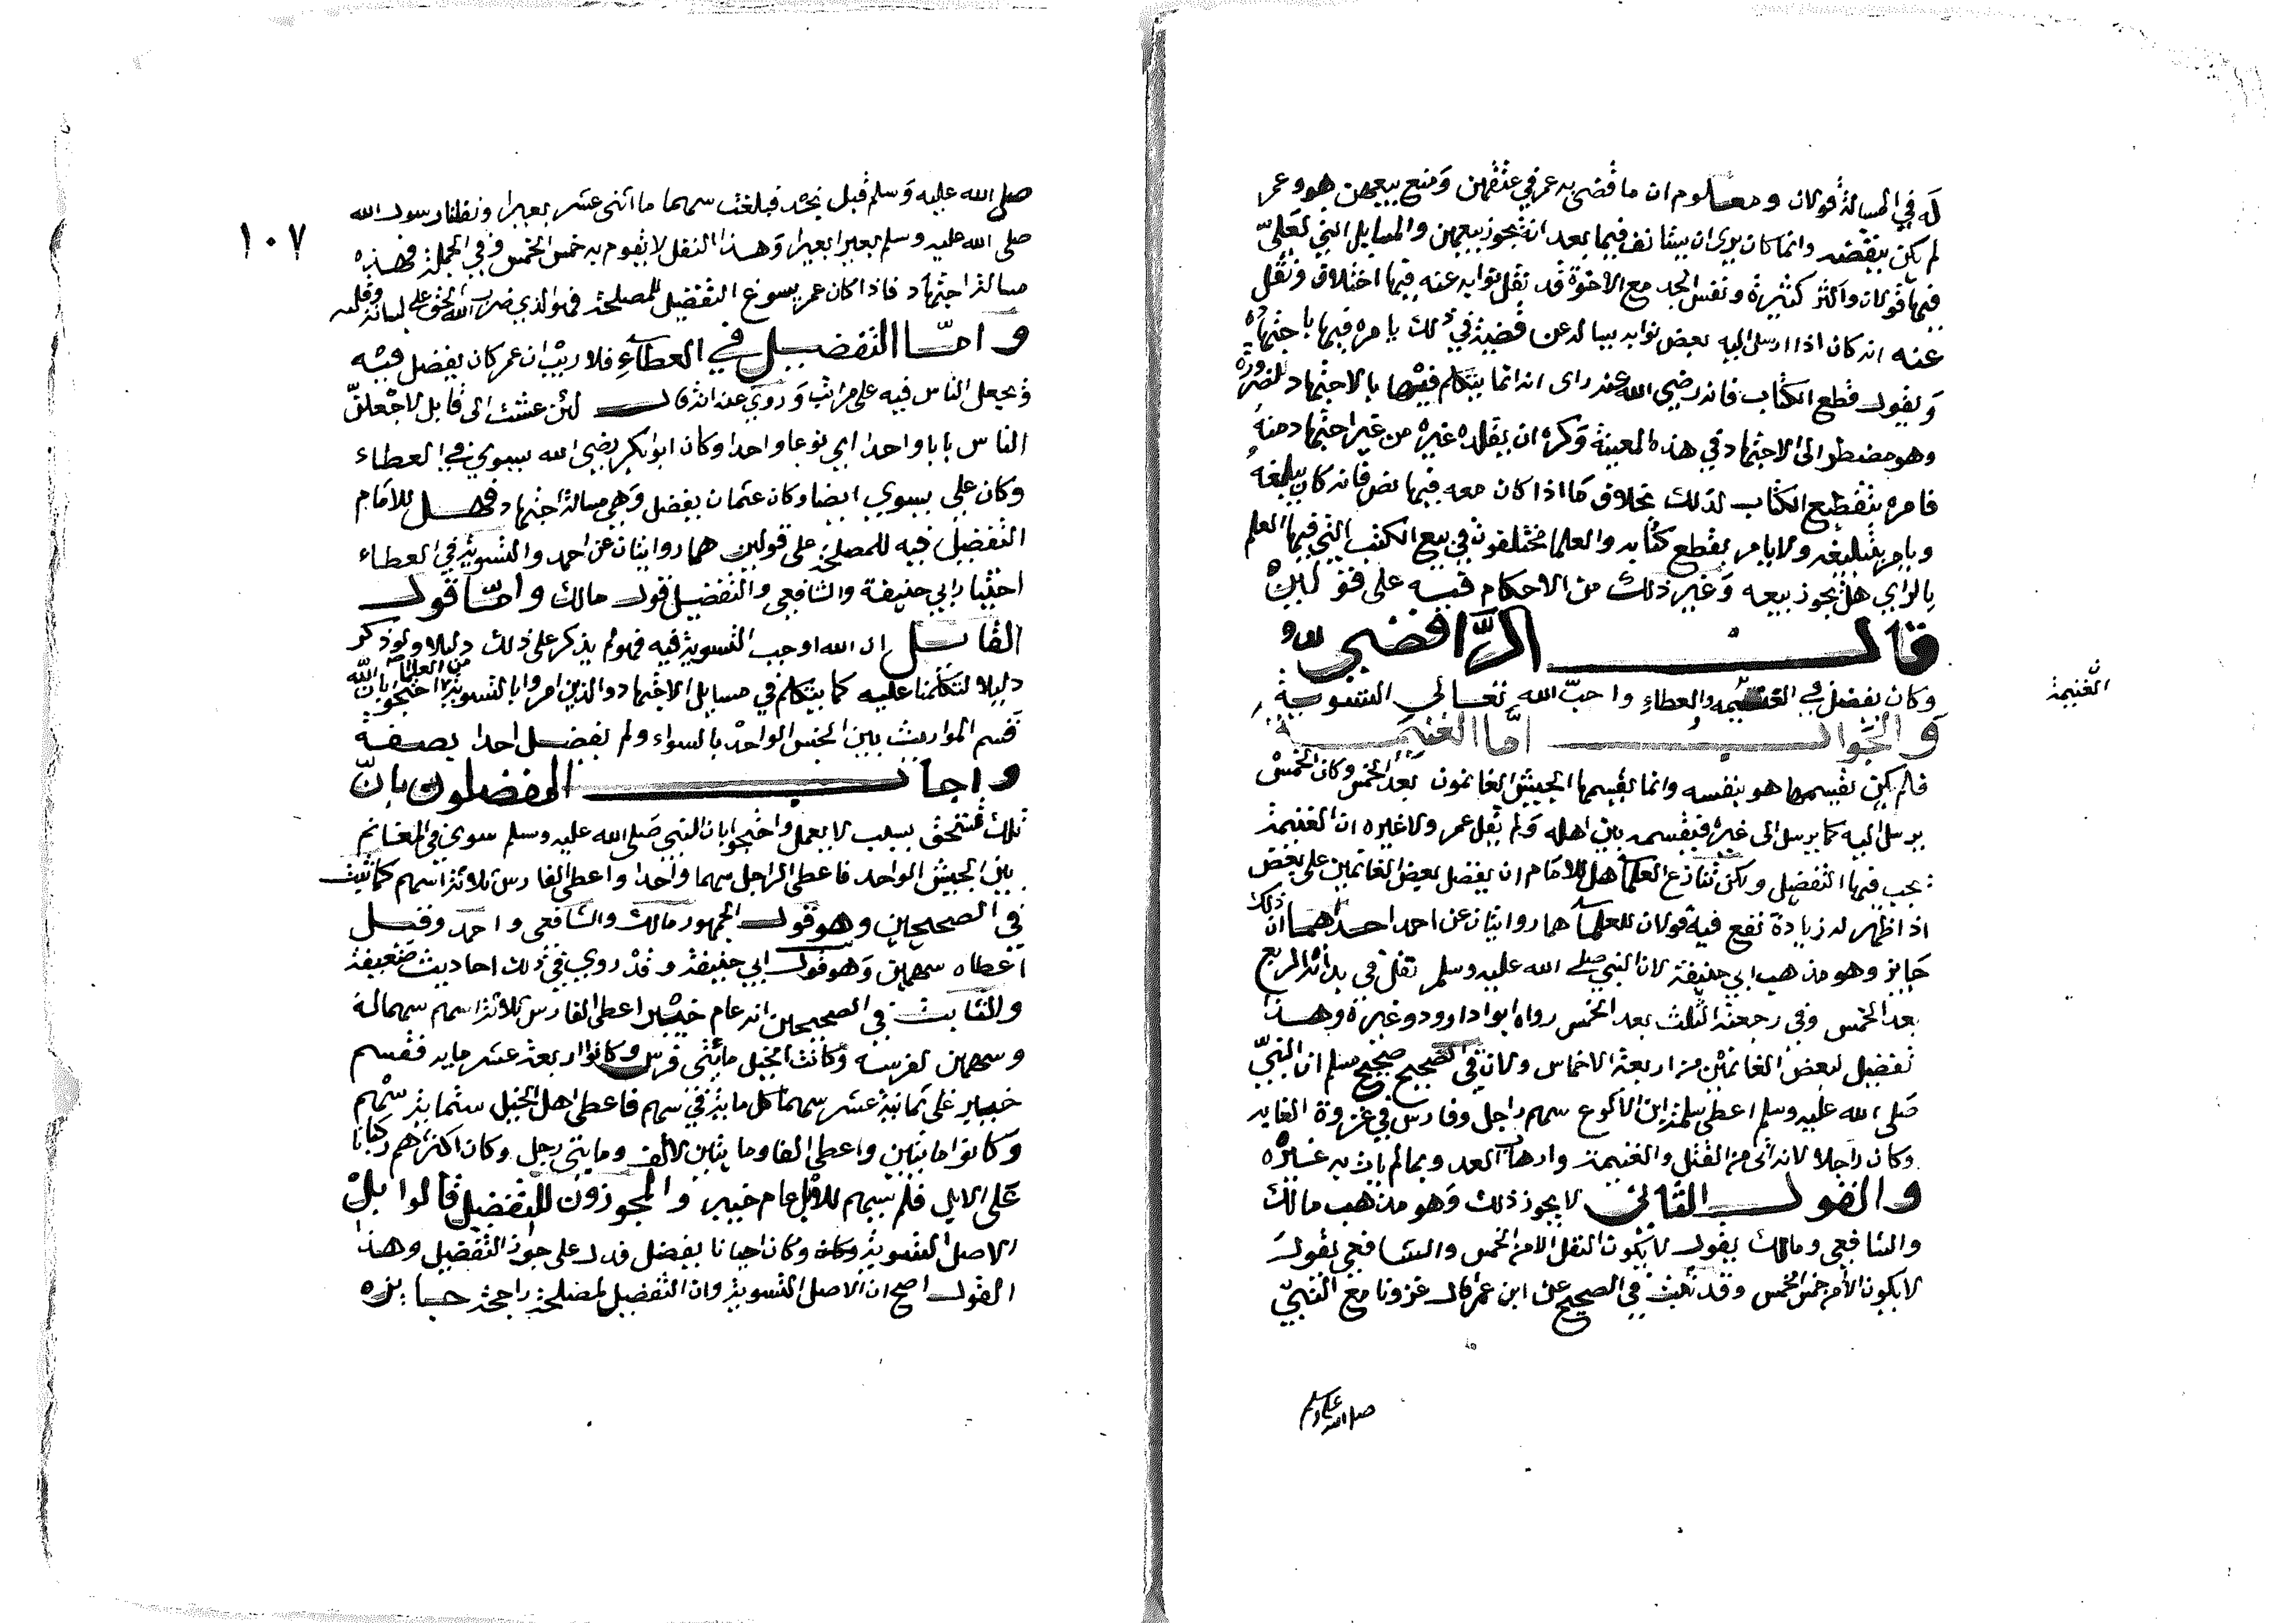 له في المسالة قولان ومعلوم ان ما قضى به عمر في عتقهن ومنع بيعهن هو وعمر
لم يكن ينقضه وانما كان يرى ان يستانف فيما بعد انه يجوز بيعهن والمسايل التي لعلي
فيها قولان واكثر كثيرة ونفس الجد مع الاخوة قد نقل نوابه عنه فيها اختلاف ونقل
عنه انه كان اذا ارسل اليه بعض نوابه يساله عن قضية في ذلك يامره فيها باجتهاده
ويقول قطع الكتاب فانه رضي الله عنه راى انه انما يتكلم فيها بالاجتهاد للضرورة
وهو مضطر الى الاجتهاد في هذه المعينة وكره ان يقلده غيره من غير اجتهاد منه
فامره بتقطيع الكتاب لذلك بخلاف ما اذا كان معه فيها نص فانه كان يبلغه
ويامر بتبليغه ولا يامر بقطع كتابه والعلما مختلفون في بيع الكتب التي فيها العلم
بالراي هل يجوز بيعه وغير ذلك من الاحكام فيه على قولين
قال الرافضي
وكان يفضل في الغنيمه والعطاء واوجب الله تعالى التسوية
الغنيمة
والجواب اما الغنيمة
فلم يكن يقسمها هو بنفسه وانما يقسمها الجيش الغانمون بعد الخمس وكان الخمس
يرسل اليه كما يرسل الى غيره فيقسمه بين اهله ولم يقل عمر ولا غيره ان الغنيمة
يجب فيها التفضيل ولكن تنازع العلما هل للامام ان يفضل بعض الغانمين على بعض
اذا ظهر له زيادة نفع فيه قولان للعلما هما روايتان عن احمد احدهما ان ذلك
جايز وهو مذهب ابي حنيفة لان النبي صلى الله عليه وسلم نفل في بداته الربع
بعد الخمس وفي رجعته الثلث بعد الخمس رواه ابوا داوود وغيره وهذا
تفضيل لبعض الغانمين من اربعة الاخماس ولان في الصحيح صحيح مسلم ان النبي
صلى الله عليه وسلم اعطى سلمة ابن الاكوع سهم راجل وفارس في غزوة الغابه
وكان راجلا لانه اتى من القتل والغنيمة وارهاب العدو بما لم يات به غيره
والقول الثاني لا يجوز ذلك وهو مذهب مالك
والشافعي ومالك يقول لا يكون النفل الا من الخمس والشافعي يقول
لا يكون الا من خمس الخمس وقد ثبت في الصحيح عن ابن عمر قال غزونا مع النبي
صلى الله عليه وسلم
١٠٧
صلى الله عليه وسلم قبل نجد فبلغت سهما ما اثنى عشر بعيرا ونفلنا رسول الله
صلى الله عليه وسلم بعيرا بعيرا وهذا النفل لا يقوم به خمس الخمس وفي الجملة فهذه
مسالة اجتهاد فاذا كان عمر يسوغ التفضيل للمصلحة فهو الذي ضرب الله الحق على لسانه وقلبه
واما التفضيل في العطاء فلا ريب ان عمر كان يفضل فيه
ويجعل الناس فيه على مراتب وروي عنه انه قال لئن عشت الى قابل لاجعلن
الناس بابا واحدا اي نوعا واحدا وكان ابو بكر رضي الله يسوي في العطاء
وكان علي يسوي ايضا وكان عثمان يفضل وهي مسالة اجتهاد فهل للامام
التفضيل فيه للمصلحة على قولين هما روايتان عن احمد والتسوية في العطاء
اختيار ابي حنيفة والشافعي والتفضيل قول مالك واما قول
القائل ان الله اوجب التسوية فيه فهو لم يذكر على ذلك دليلا ولو ذكر
دليلا لتكلمنا عليه كما يتكلم في مسايل الاجتهاد والذين امروا بالتسوية من العلما احتجوا بان الله
قسم المواريث بين الجنس الواحد بالسواء ولم يفضل احدا بصفة
واجاب المفضلون بان
تلك تستحق بسبب لا بعمل واحتجوا بان النبي صلى الله عليه وسلم سوى في المغانم
بين الجيش الواحد فاعطى الراجل سهما واحدا واعطى الفارس ثلاثة اسهم كما ثبت
في الصحيحين وهو قول الجمهور مالك والشافعي واحمد وقيل
اعطاه سهمين وهو قول ابي حنيفة وقد روي في ذلك احاديث ضعيفة
والثابت في الصحيحين انه عام خيبر اعطى الفارس ثلاثة اسهم سهما له
وسهمين لفرسه وكانت الخيل مائتي فرس وكانوا اربعة عشر مايه فقسم
خيبر على ثمانية عشر سهما كل ماية في سهم فاعطى اهل الخيل ستماية سهم
وكانوا مايتين واعطى الفا ومايتين لالف ومايتي رجل وكان اكثرهم ركبانا
على الابل فلم يسهم للابل عام خيبر والمجوزون للتفضيل قالوا بل
الاصل التسوية وكان وكان احيانا يفضل فدل على جواز التفضيل وهذا
القول اصح ان الاصل التسوية وان التفضيل لمصلحة راجحة جايزه